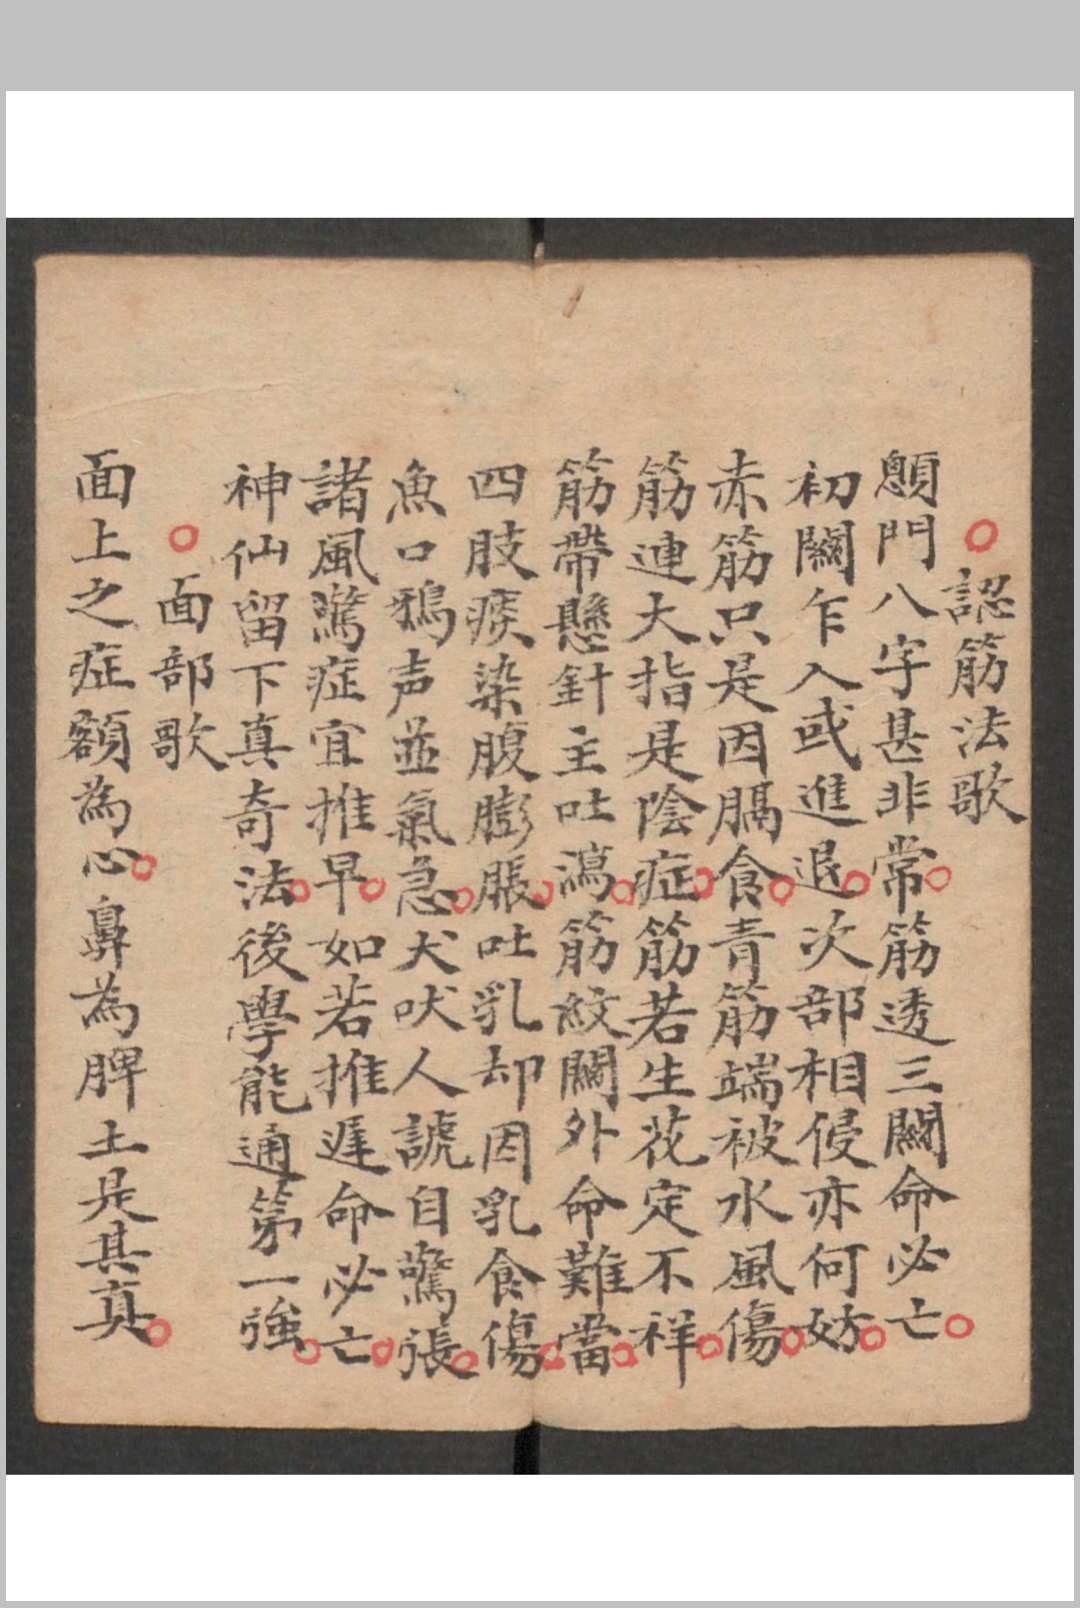 ○認筋法歌
顖門八字甚非常○筋透三關命必亡○
初關乍入或進退○次部相侵亦何妨○
赤筋只是因膈食○青筋端被水風傷○
筋連大指是陰症○筋若生花定不祥○
筋帶懸針主吐瀉○筋紋關外命難當○
四肢痰染腹膨脹○吐乳却因乳食傷○
魚口鴉声並氣急○犬吠人諕自驚張○
諸風驚症宜推早○如若推遲命必亡○
神仙留下真奇法○後學能通第一強○
○面部歌
面上之症額為心○鼻為脾土是其真○